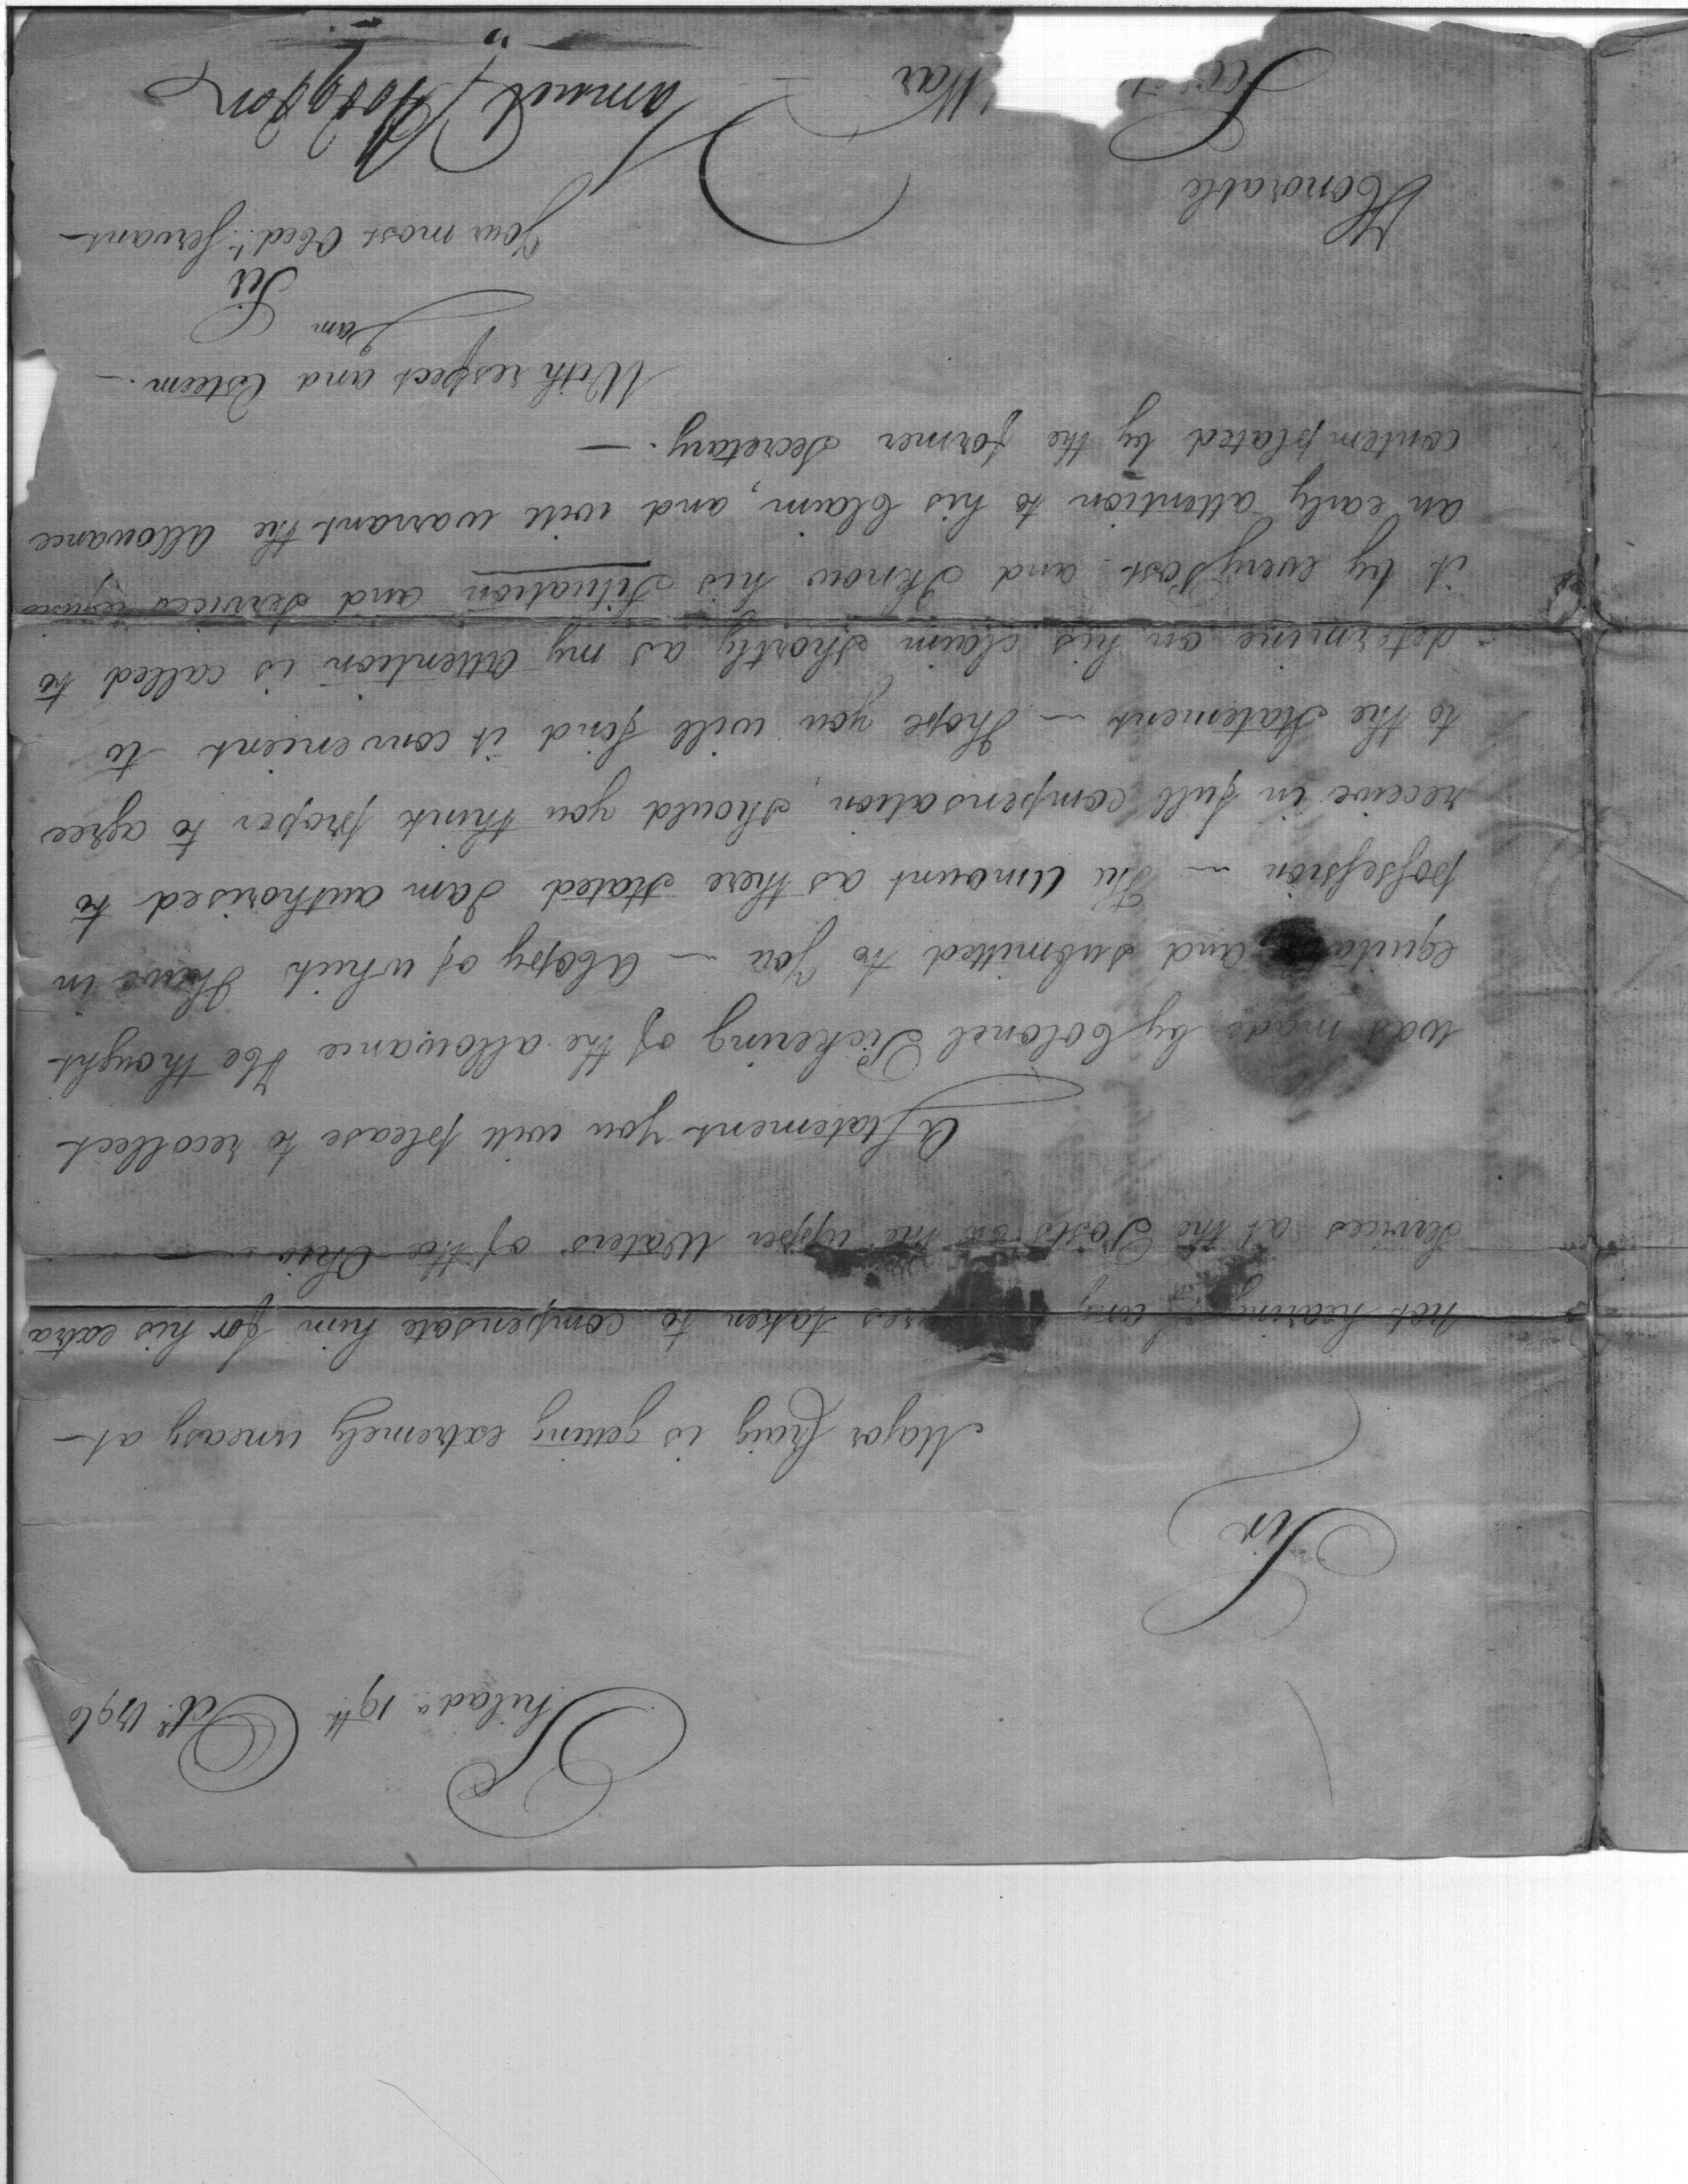 Philad.a 19th Octr. 1796
Sir
Major Craig is getting extremely uneasy at
not hearing any taken to compensate him for his extra
Services at the Posts on the upper Waters of the Ohio —
A Statement you will please to recollect
was made by Colonel Pickering of the allowance He thought
and submitted to you — A Copy of which I have in
possession — The Amount as there stated I am authorised to
receive in full compensation, should you think proper to agree
to the Statement — I hope you will find it convenient to
determine on his claim shortly as my attention is called to
it by every Post and I know his Situation and Services
an early attention to his Claim, and will warrant the allowance
contemplated by the former Secretary. —
With respect and Esteem. —
I am
Sir
Your most Obed.t Servant
Samuel Hodgdon
Honorable
War